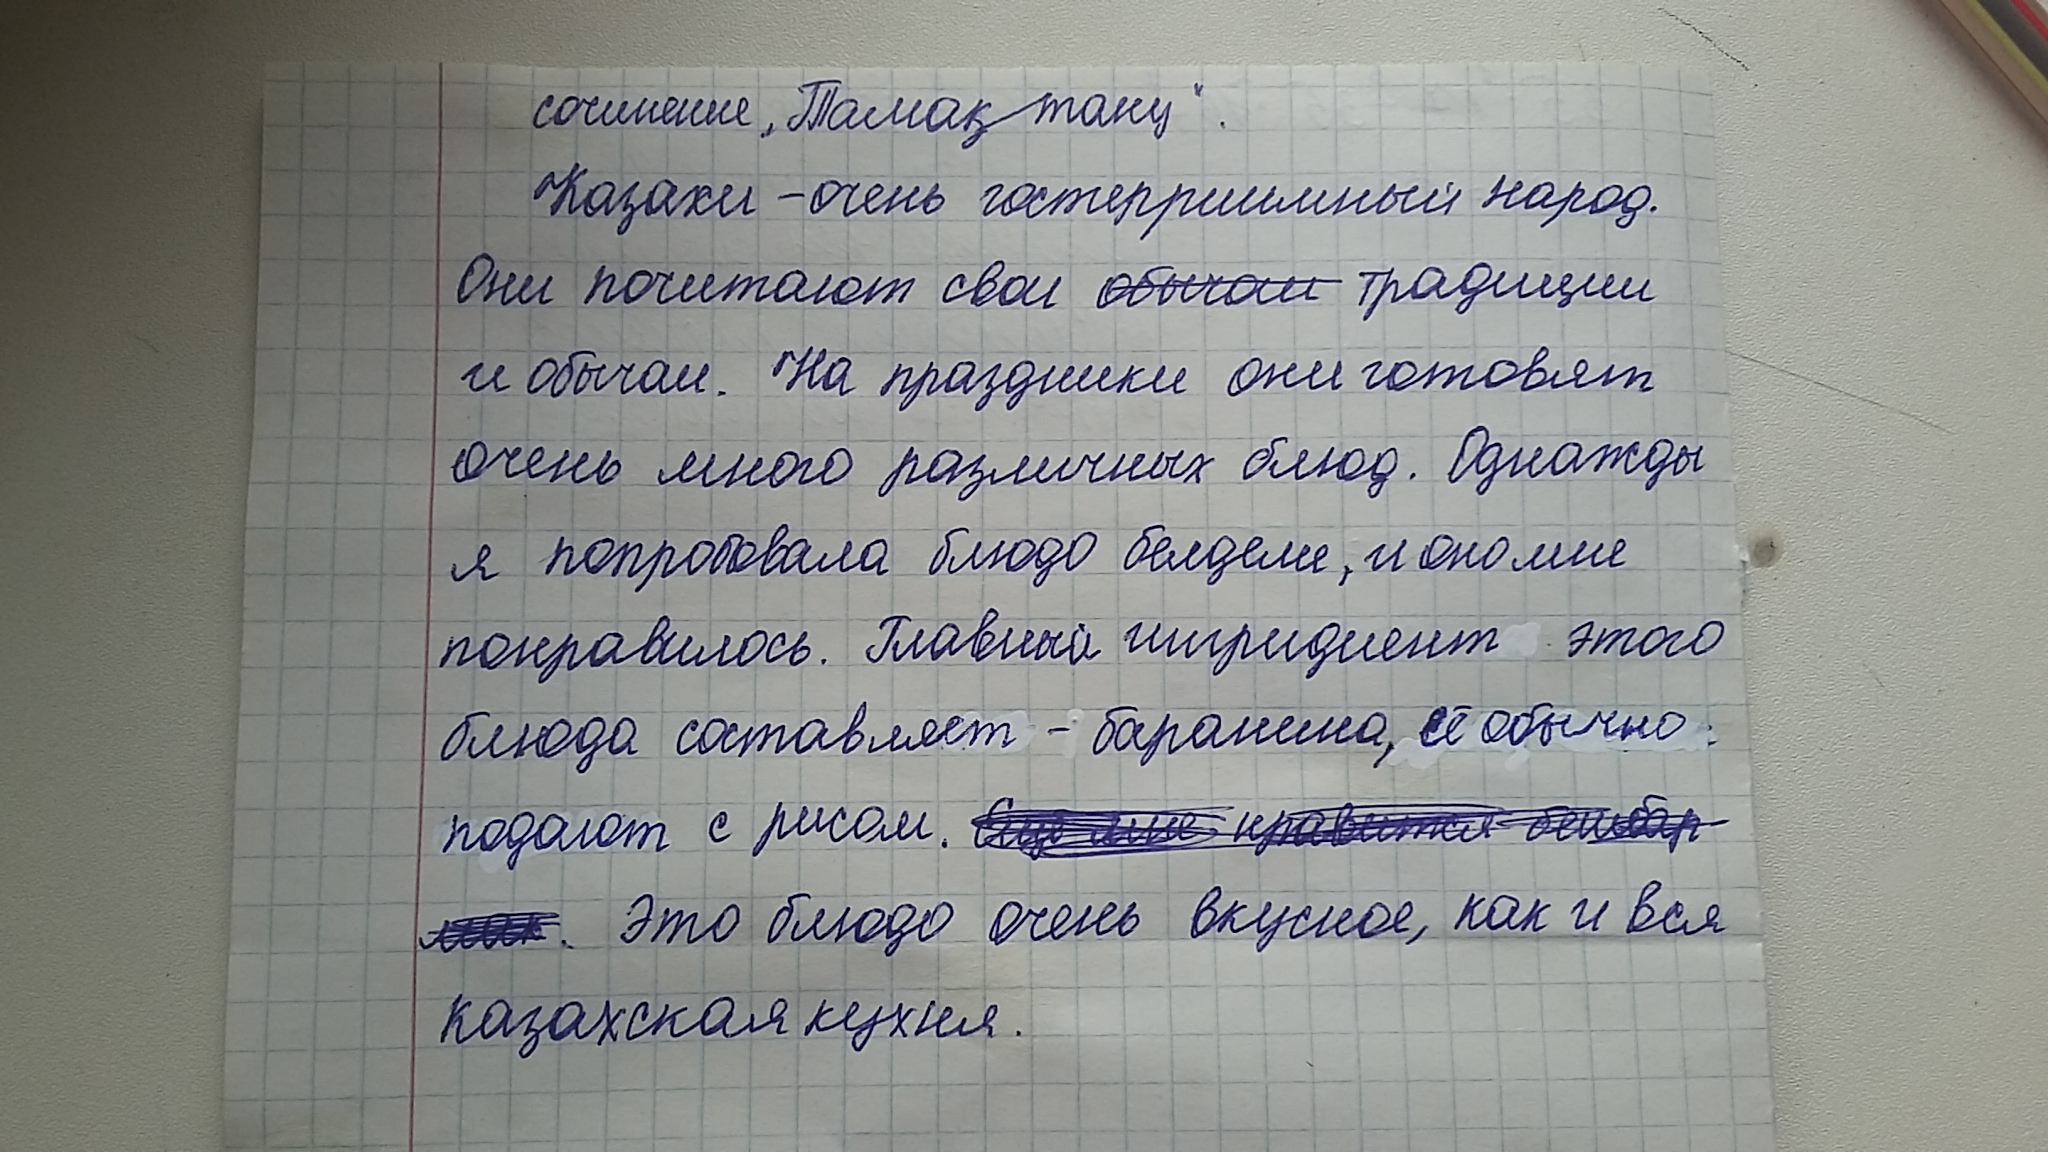 сочинение „Тамақ тану".
Казахи – очень гостерриимный народ.
Они почитают свои обычаи традиции
и обычаи. На праздники они готовят
очень много различных блюд. Однажды
я попробовала блюдо белдеме, и оно мне
понравилось. Главный ингридиент этого
блюда составляет – баранина, её обычно
подают с рисом. Ещё мне нравится бешбар
мак. Это блюдо очень вкусное, как и вся
казахская кухня.